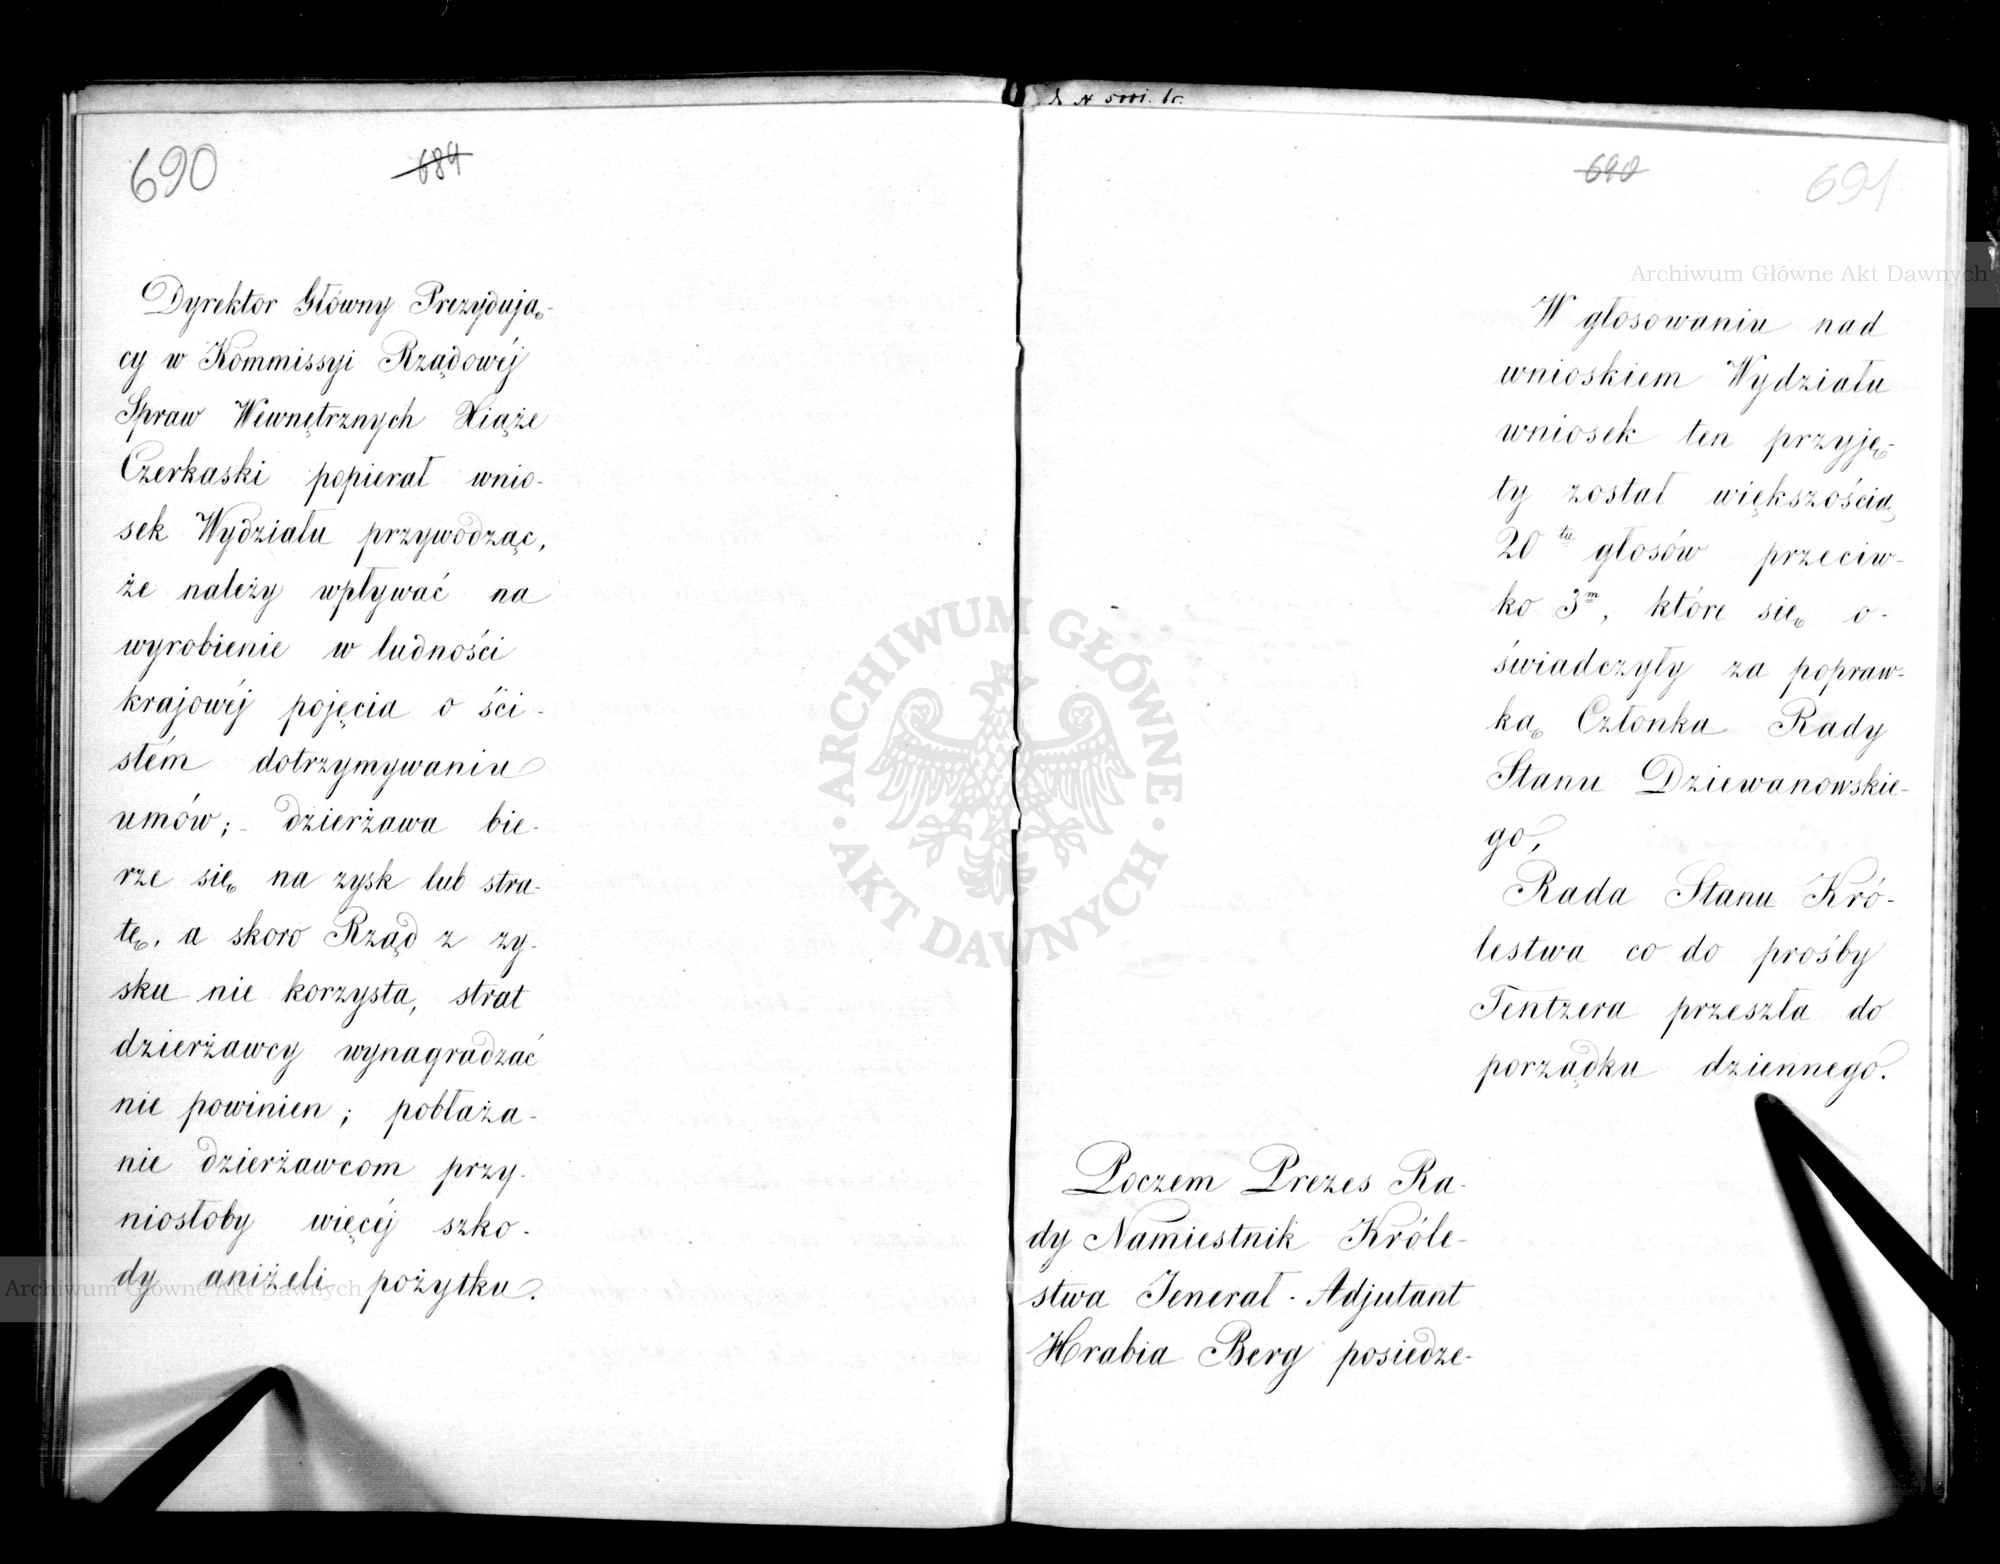 690
689
Dyrektor Główny Prezydują-
cy w Kommissyi Rządowéj
Spraw Wewnętrznych Xiąże
Czerkaski popierał wnio-
sek Wydziału przywodząc,
że należy wpływać na
wyrobienie w ludności
krajowéj pojęcia o ści-
słém dotrzymywaniu
umów; dzierżawa bie-
rze się na zysk lub stra-
tę, a skoro Rząd z zy-
sku nie korzysta, strat
dzierżawcy wynagradzać
nie powinien; pobłaża-
nie dzierżawcom przy-
niosłoby więcéj szko-
dy aniżeli pożytku.
690
691
W głosowaniu nad
wnioskiem Wydziału
wniosek ten przyję-
ty został większością
20 tu głosów przeciw-
ko 3m, które się o-
świadczyły za popraw-
ką Członka Rady
Stanu Dziewanowskie-
go,
Rada Stanu Kró-
lestwa co do prośby
Tentzera przeszła do
porządku dziennego.
Poczem Prezes Ra-
dy Namiestnik Króle-
stwa Jenerał-Adjutant
Hrabia Berg posiedze-
Archiwum Główne Akt Dawnych
Archiwum Główne Akt Dawnych
ARCHIWUM GŁÓWNE
AKT DAWNYCH